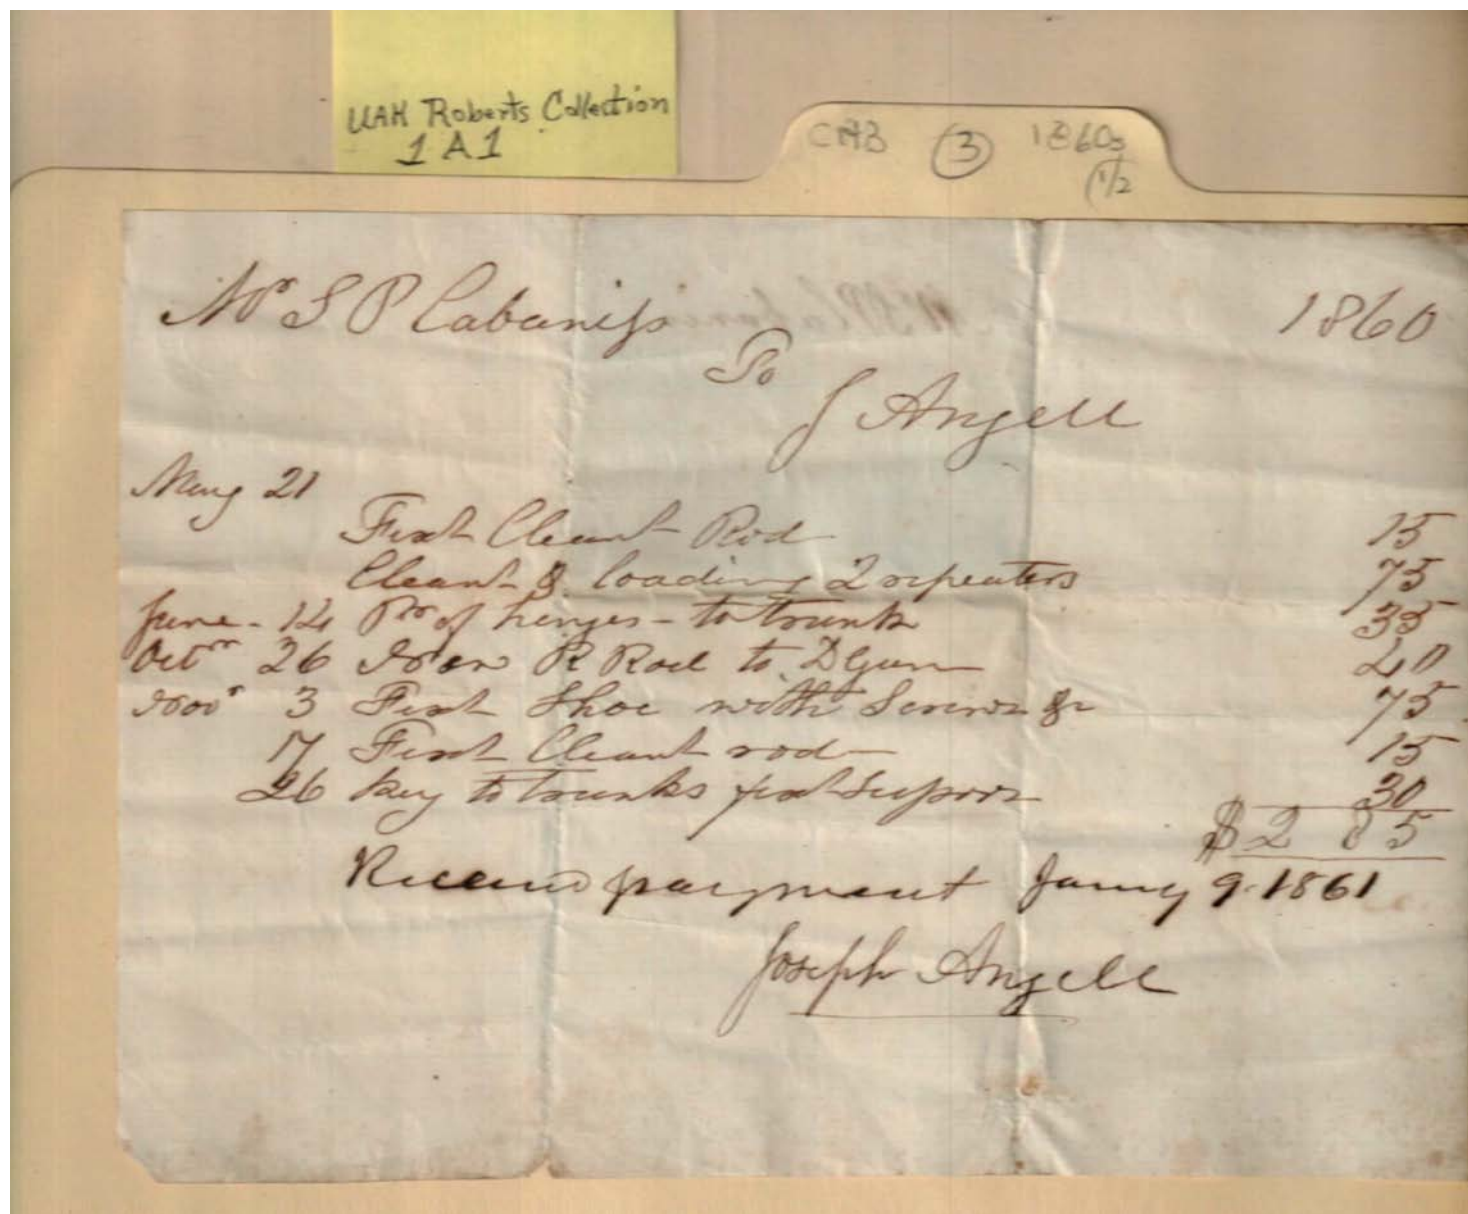 UAH Roberts Collection
1A1
CAB 3 1860s
(1/2
Mr S P Cabaniss
1860
To
J Angell
May 21
Fixt Cleant Rod 15
Cleant & loading 2 repeaters 75
June - 14 Pr of hinges - to trunk 35
Octr 26 Iron R Rod to D Gun 40
Novr 3 Fixt Shoe with Screws &c 75
17 Fixt Cleant rod 15
26 Key to trunks fixt 30
$2 85
Receivd payment Jany 9. 1861
Joseph Angell